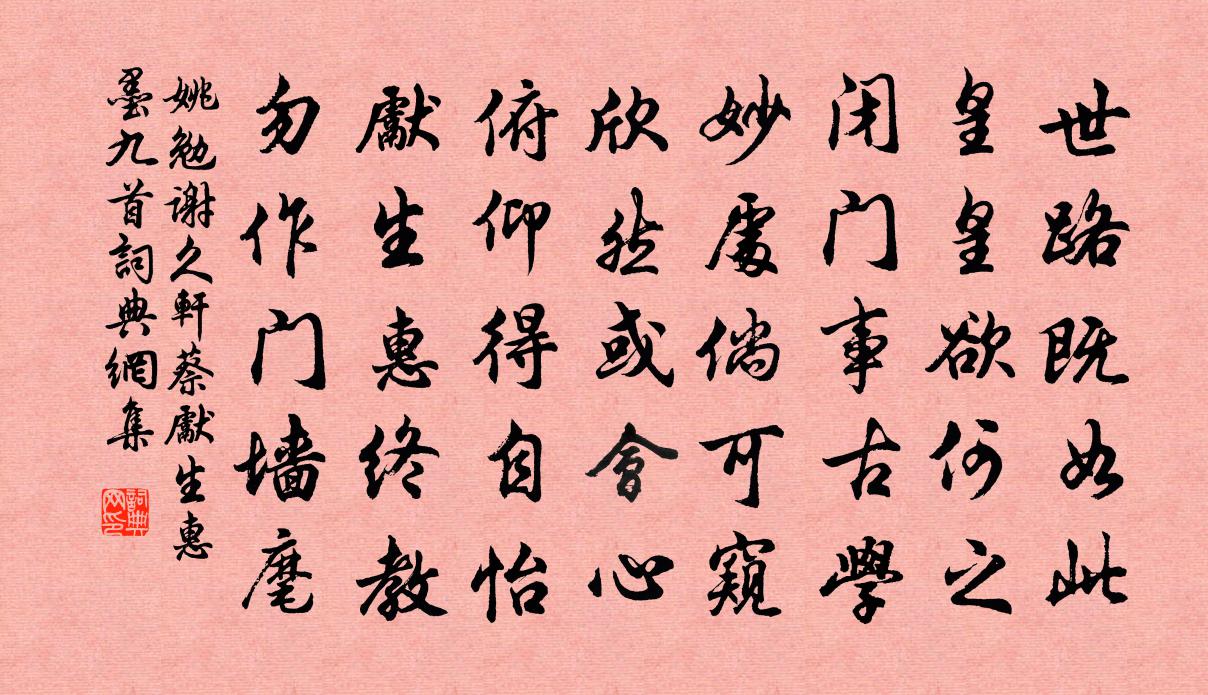 世路既如此
皇皇欲何之
闭门事古学
妙處倘可窥
欣然或會心
俯仰得自怡
獻生惠终教
勿作门墙麾
姚勉谢久軒蔡獻生惠
墨九首詞典網集
詞典网印